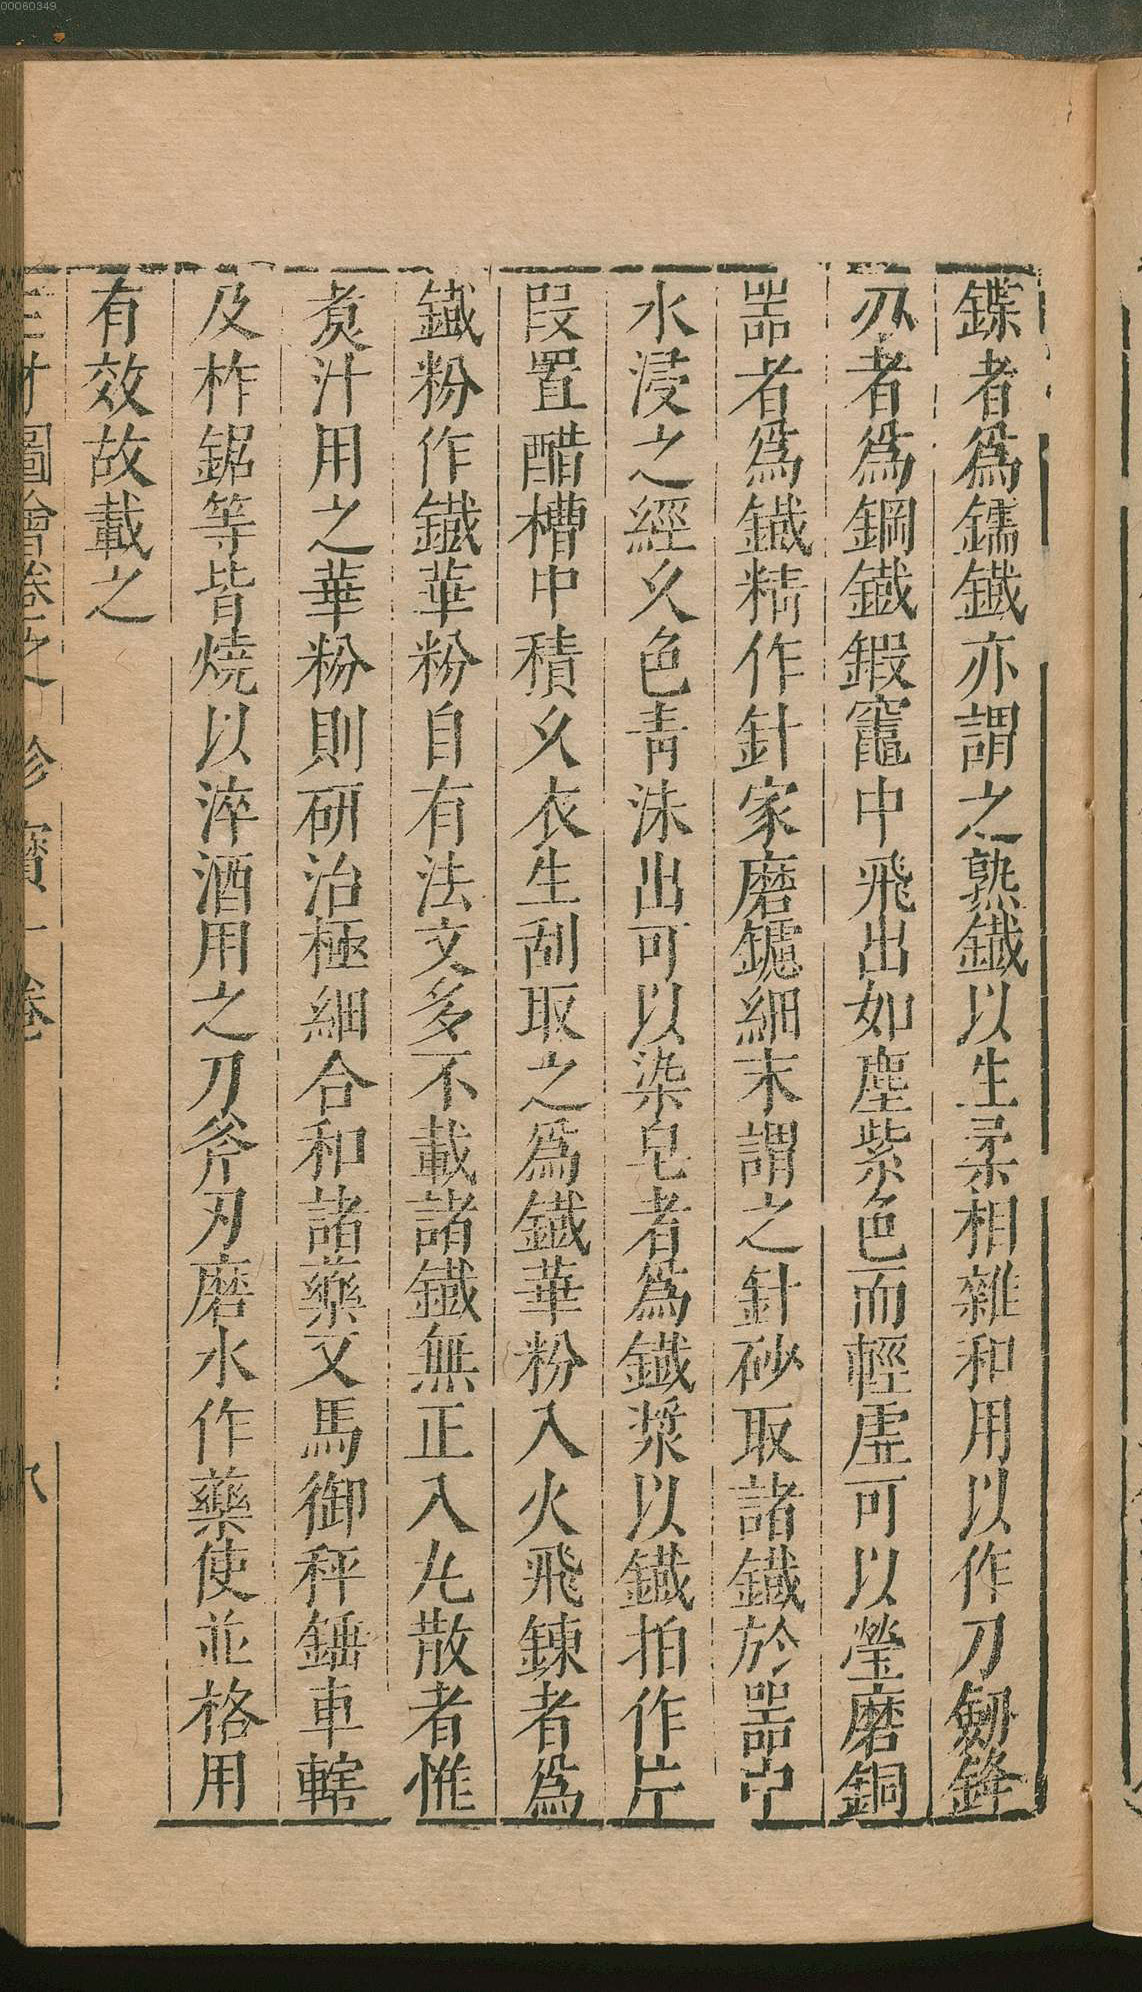 鍱者爲鑐鐵亦謂之熟鐵以生柔相雜和用以作刀劒鋒
刃者爲鋼鐵鍜竈中飛出如塵紫色而輕虛可以瑩磨銅
器者爲鐵精作針家磨鑢細末謂之針砂取諸鐵於器中
水浸之經久色青沫出可以染皂者爲鐵漿以鐵拍作片
段置醋槽中積久衣生刮取之爲鐵華粉入火飛鍊者爲
鐵粉作鐵華粉自有法文多不載諸鐵無正入丸散者惟
煑汁用之華粉則研治極細合和諸藥又馬御秤錘車轄
及柞鋸等皆燒以淬酒用之刀斧刃磨水作藥使並格用
有效故載之
三才圖會卷之 珍寶一卷
00060349